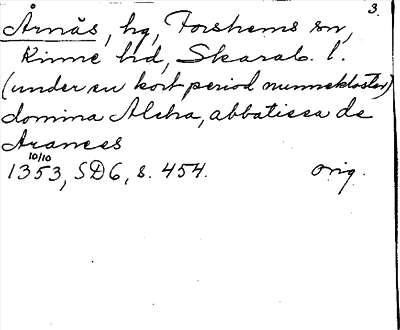 3.
Årnäs, hg, Forshems sn,
Kinne hd, Skarab. l.
(under en kort period nunnekloster)
domina Aleha, abbatissa de
Aranees
10/10
1353, SD6, s. 454. orig.